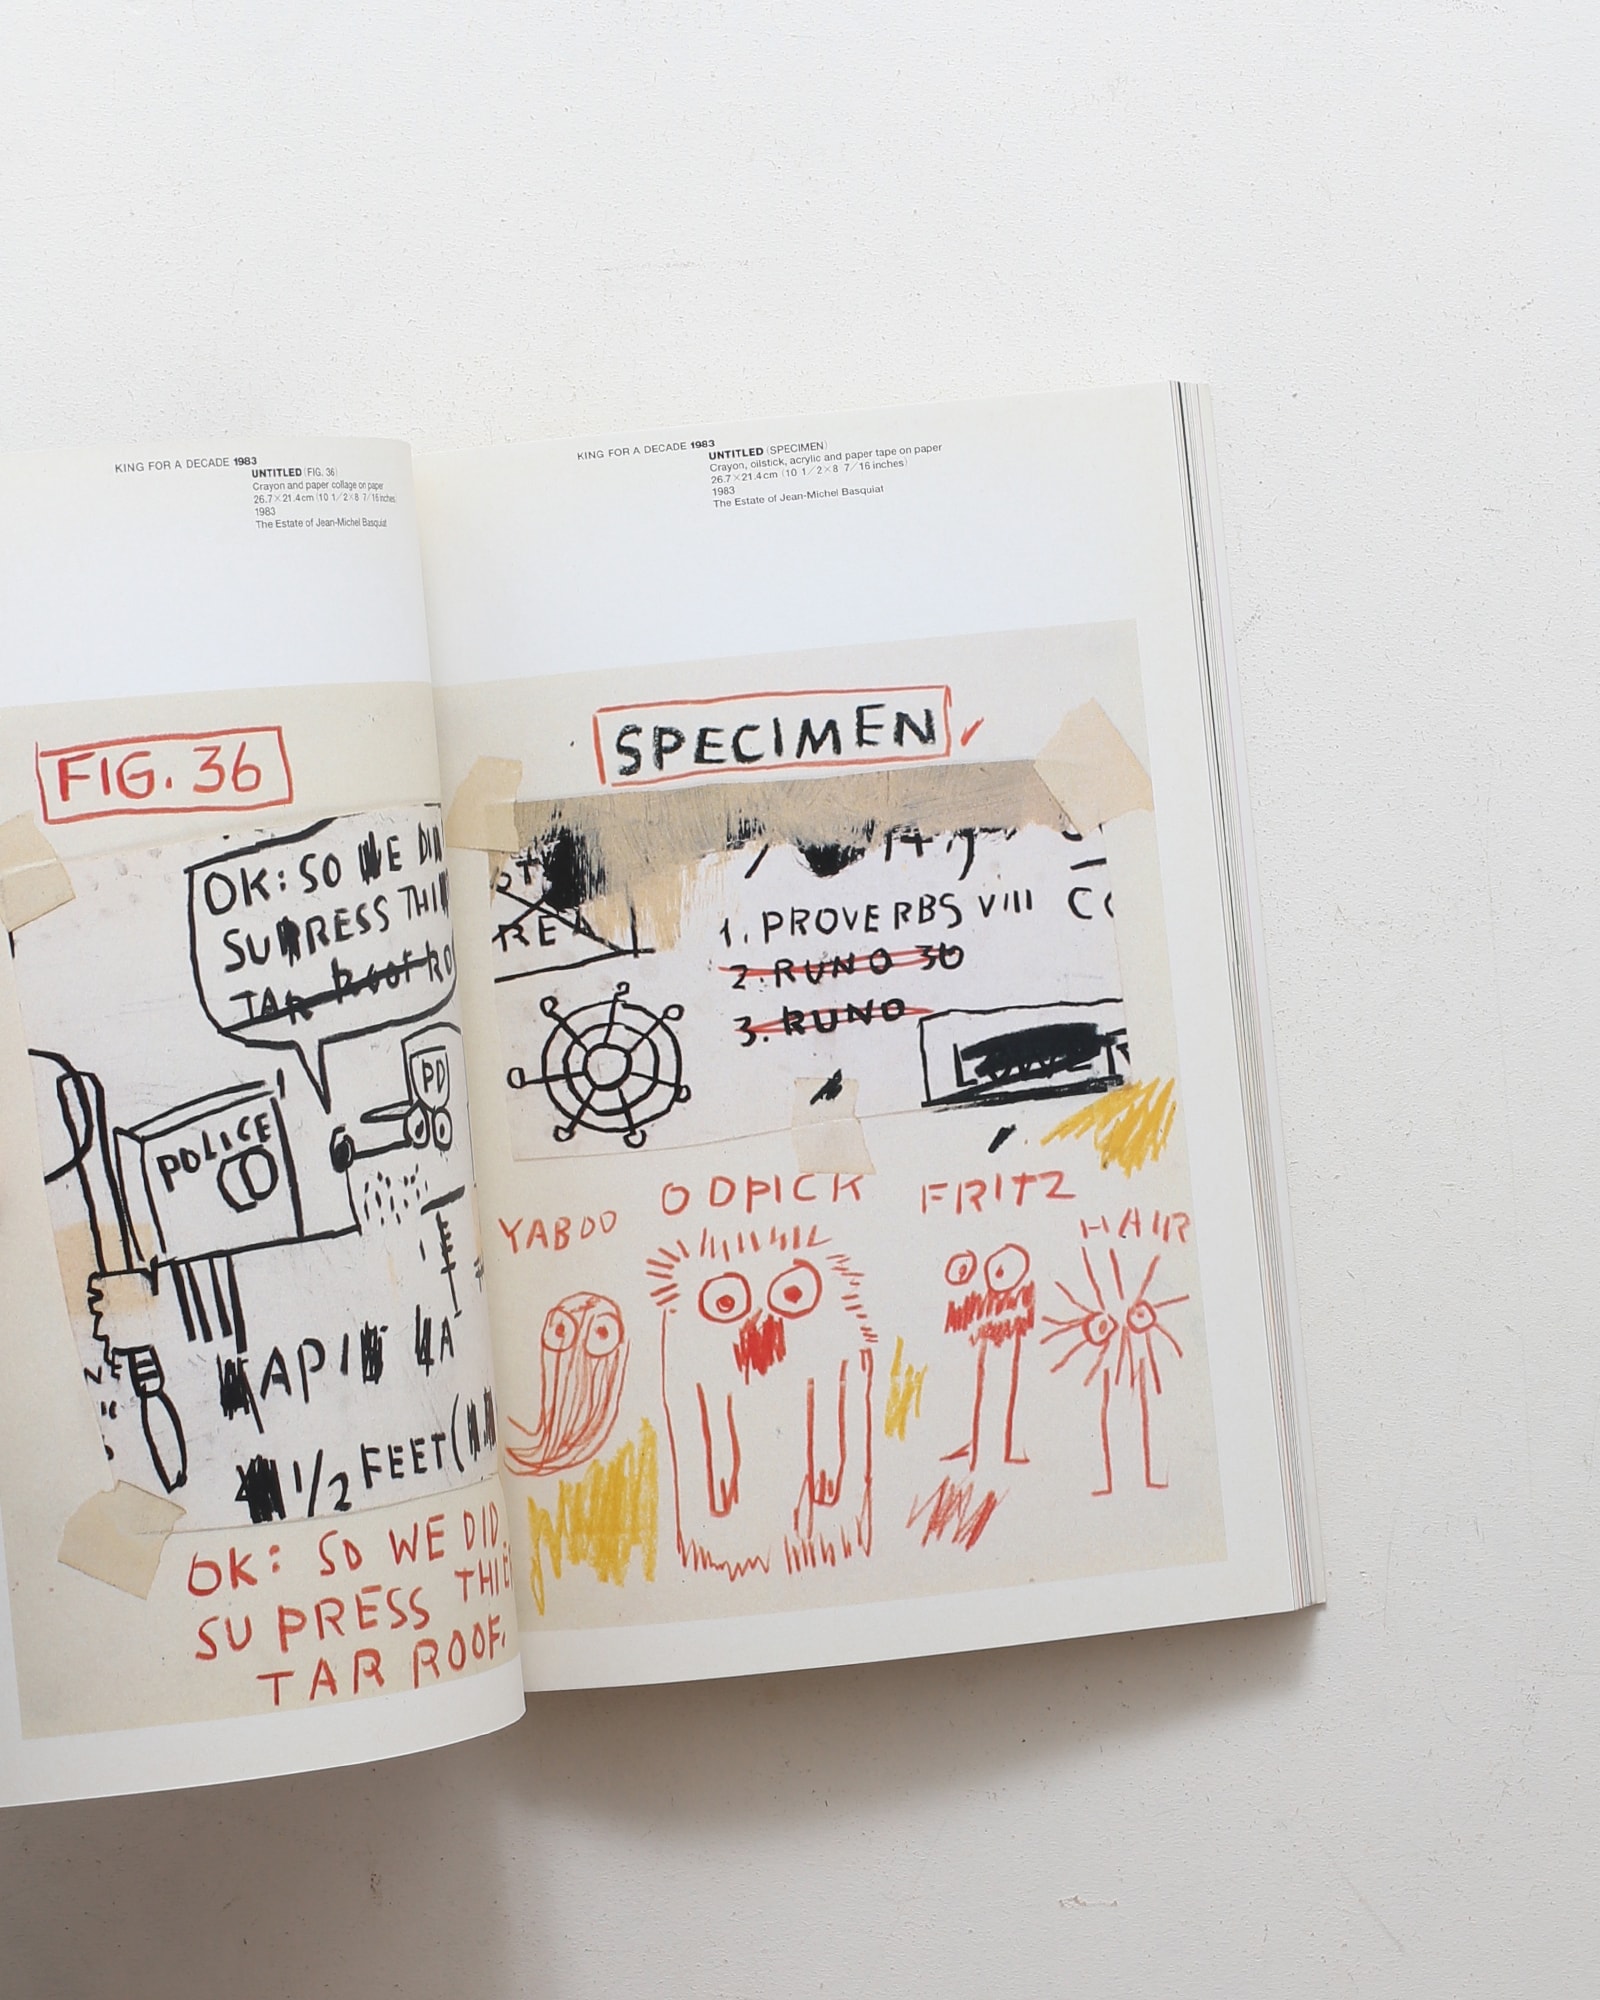 KING FOR A DECADE 1983
UNTITLED (FIG. 36)
Crayon and paper collage on paper
26.7×21.4cm (10 1/2×8 7/16 inches)
1983
The Estate of Jean-Michel Basquiat
FIG. 36
OK: SO WE DID
SUPRESS THI
TAR ROOF
PD
POLICE
1/2 FEET (
OK: SO WE DID
SUPRESS THI
TAR ROOF.
KING FOR A DECADE 1983
UNTITLED (SPECIMEN)
Crayon, oilstick, acrylic and paper tape on paper
26.7×21.4cm (10 1/2×8 7/16 inches)
1983
The Estate of Jean-Michel Basquiat
SPECIMEN
1. PROVERBS VIII
2. RUNO 36
3. RUNO
YABOO
ODPICK
FRITZ
HAIR